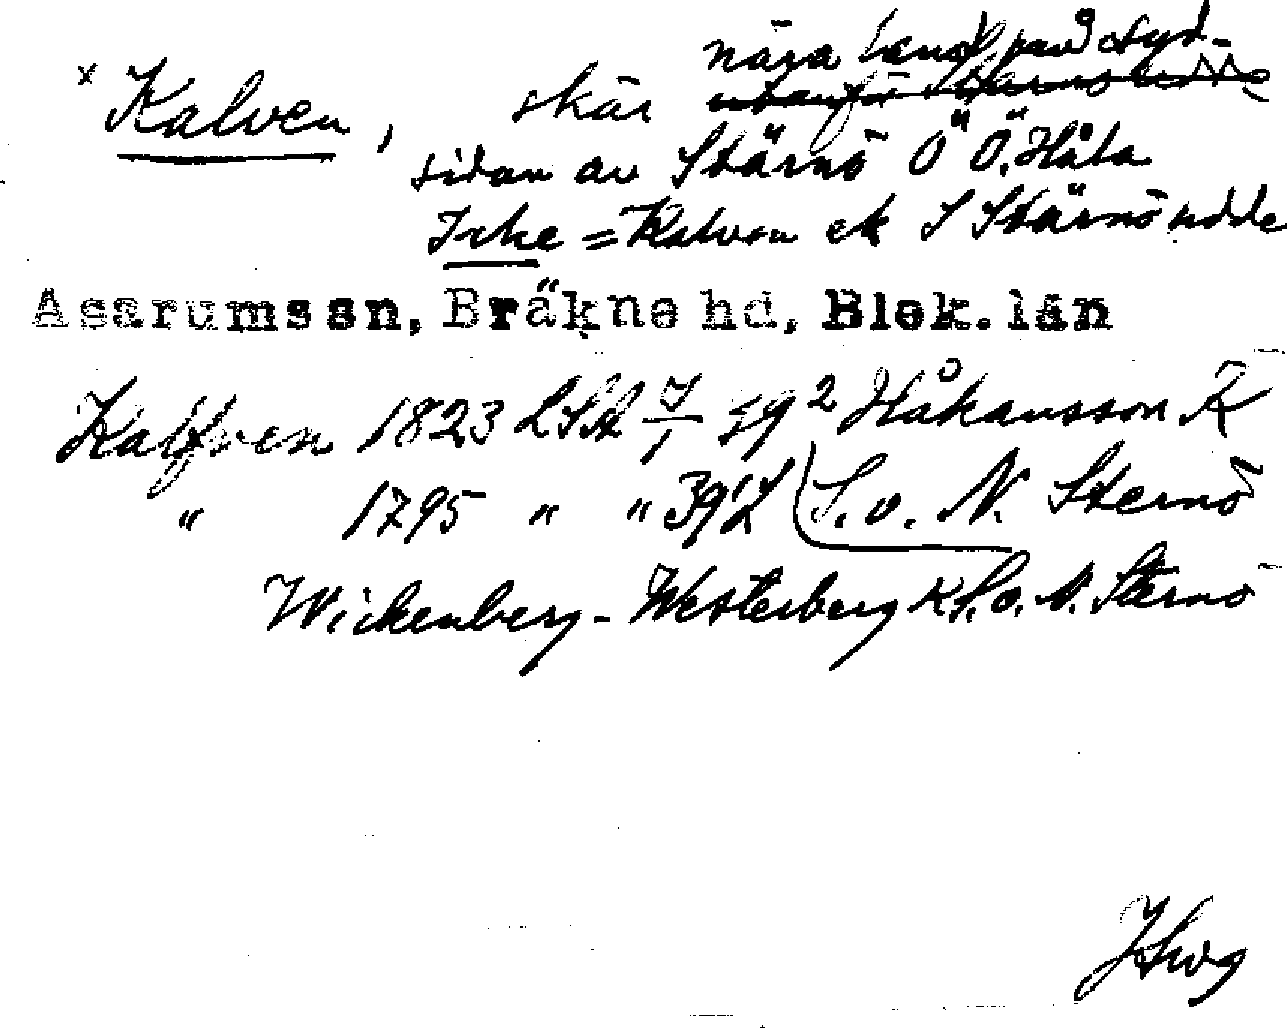 x Kalven, skär nära land på Syd-
sidan av Stärnö Ö Ö. Håla
Icke = Kalven ek S Stärnö udde
Asarumssn, Bräkne hd, Blek. län
Kalfven 1823 LSA 7/1 592 Håkansson K
" 1795 " " 391 S. o. N. Sternö
Wickenberg - Westerberg K S. o. N. Sternö